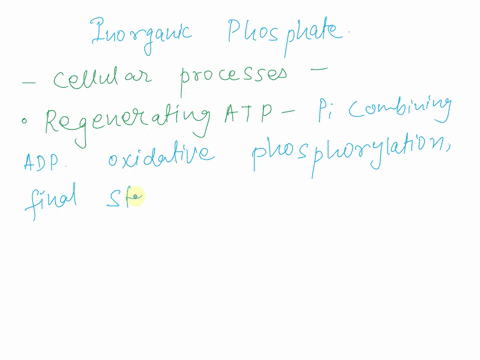 Inorganic Phosphate.
- cellular processes -
• Regenerating ATP - Pi combining
ADP. oxidative phosphorylation,
final ste